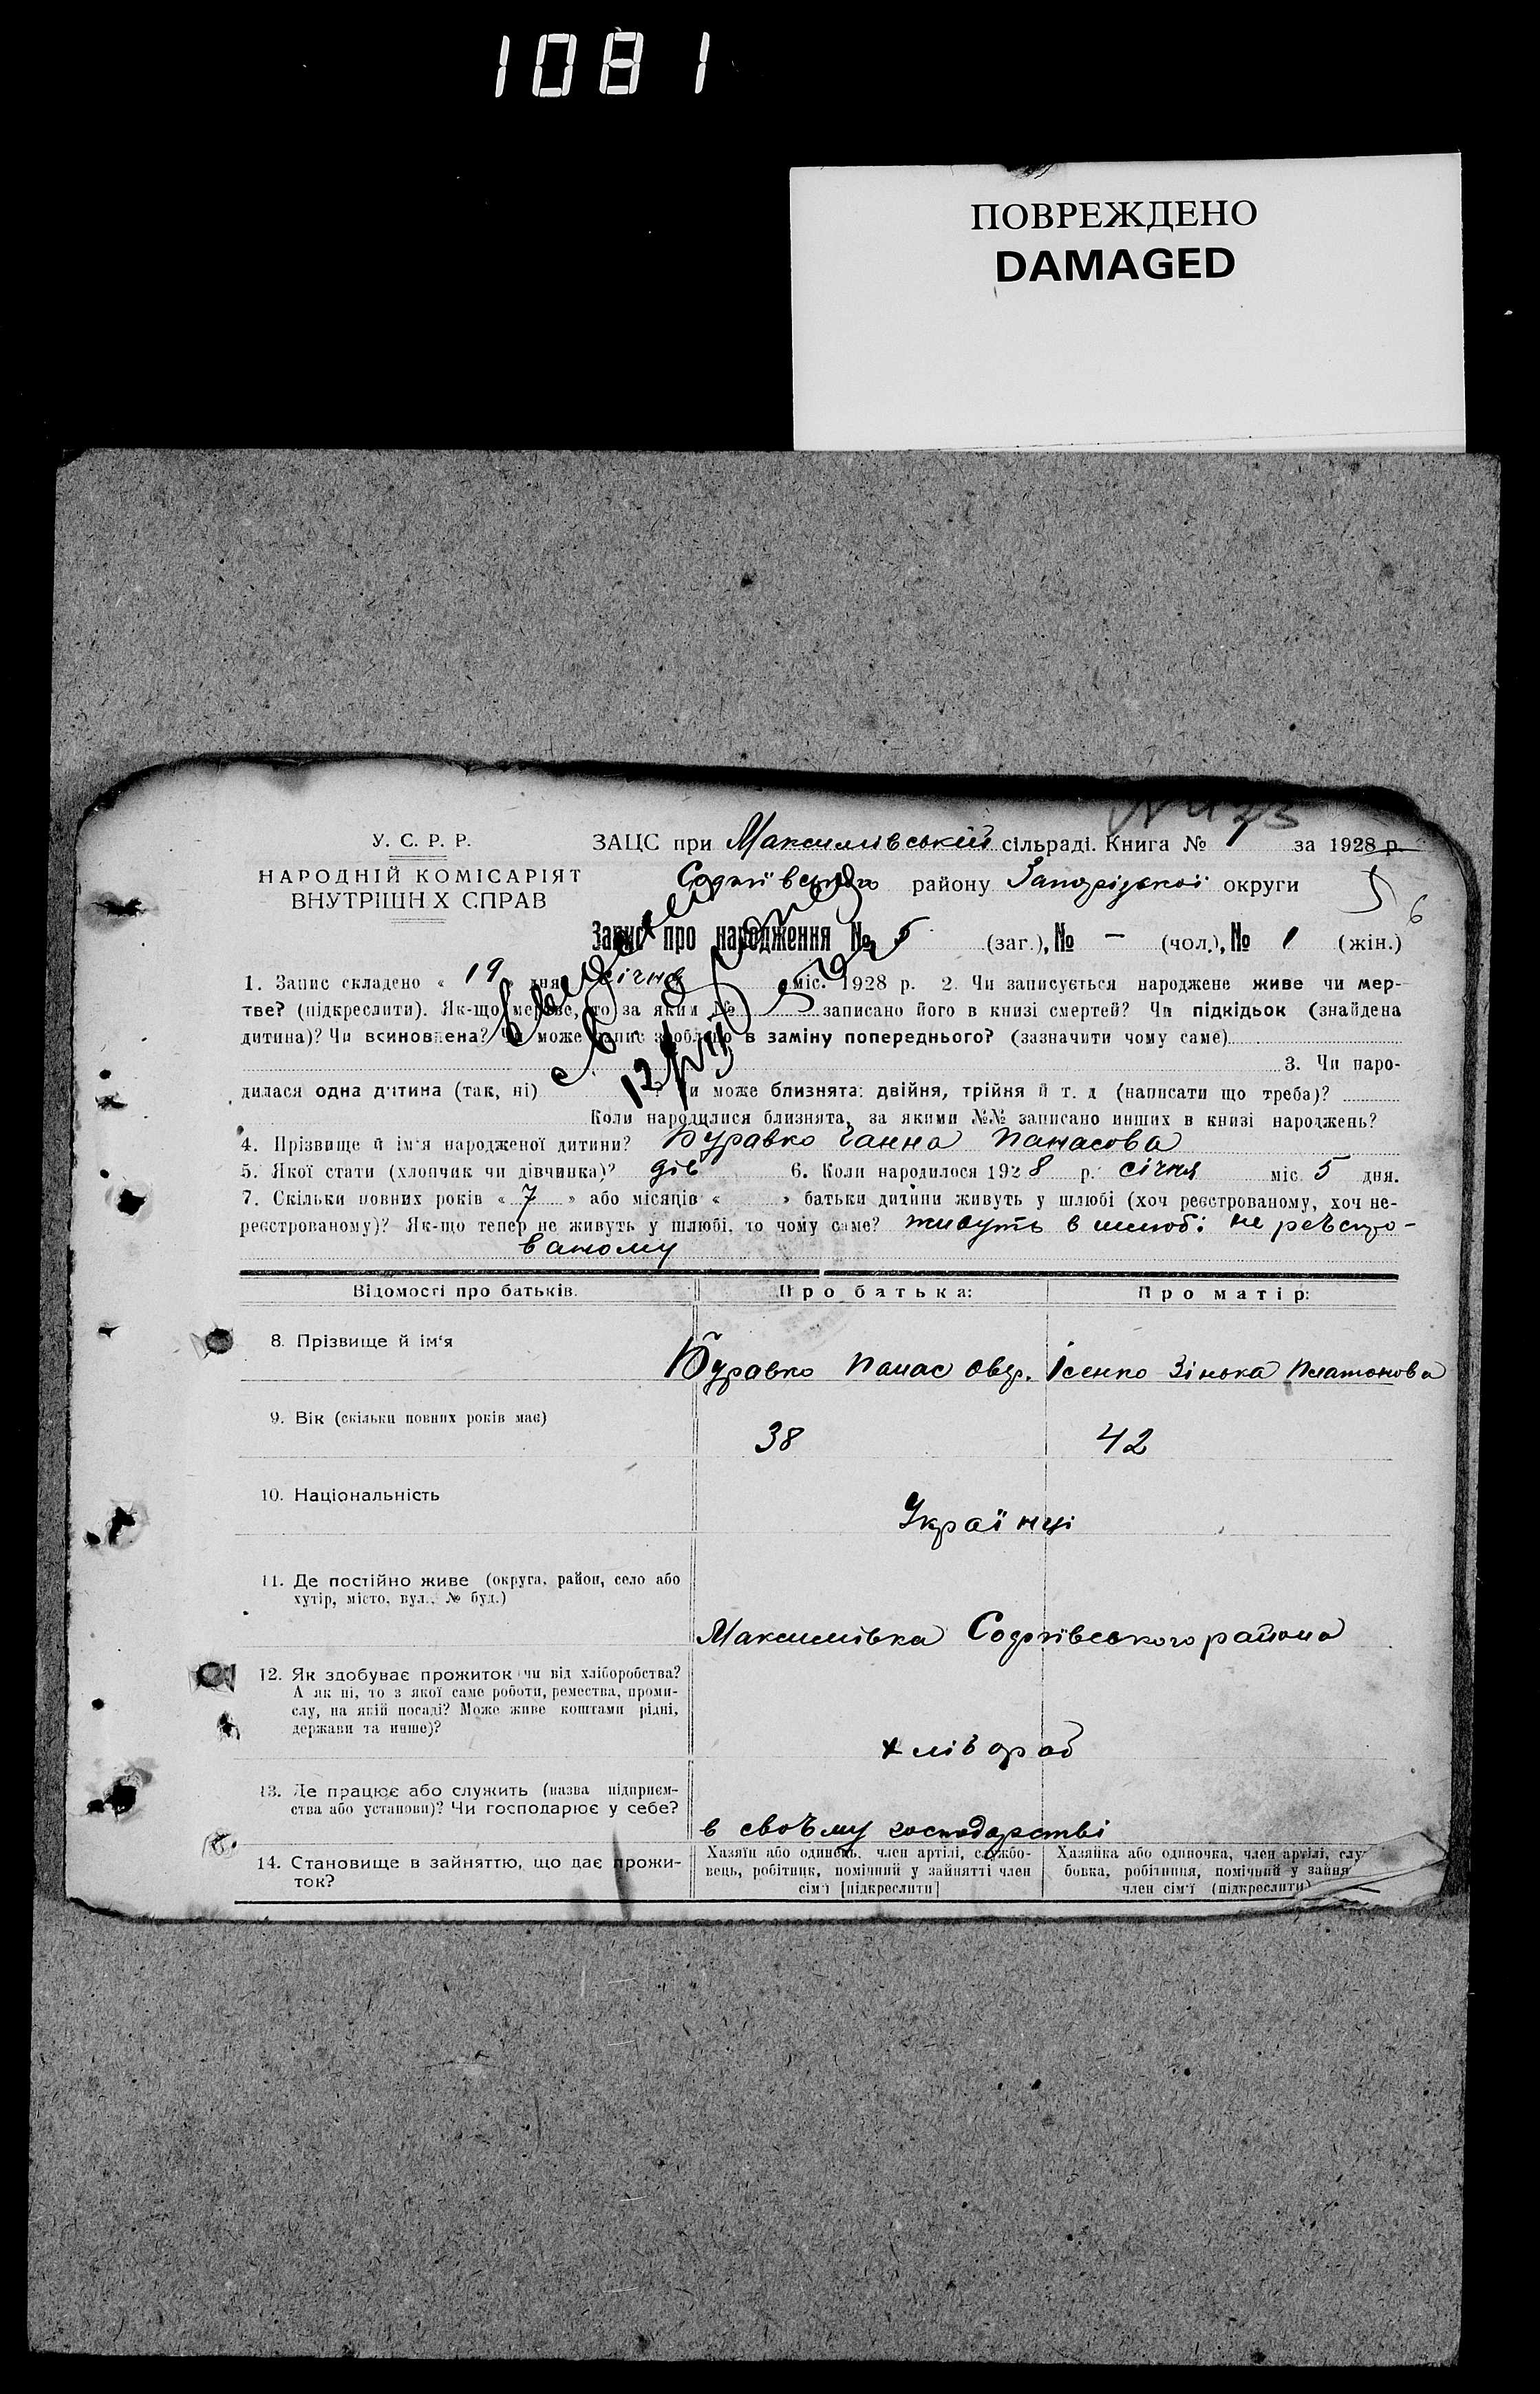 1081
ПОВРЕЖДЕНО
DAMAGED
У. С. Р. Р.
НАРОДНІЙ КОМІСАРІЯТ
ВНУТРІШНХ СПРАВ
ЗАЦС при Максимівській сільраді. Книга № 1 за 1928 р.
Софіївського району Запорізької округи
5
6
Запис про народження № 5 (заг.), № — (чол.), № 1 (жін.)
1. Запис складено « 19 » дня січня міс. 1928 р. 2. Чи записується народжене живе чи мер-
тве? (підкреслити). Як-що мертве, то за яким № записано його в книзі смертей? Чи підкідьок (знайдена
дитина)? Чи всиновлена? Чи може запис зроблено в заміну попереднього? (зазначити чому саме)
3. Чи наро-
дилася одна дитина (так, ні) ? Чи може близнята: двійня, трійня й т. д (написати що треба)?
Коли народилися близнята, за якими №№ записано инших в книзі народжень?
4. Прізвище й ім'я народженої дитини? Буравко Ганна Панасова
5. Якої стати (хлопчик чи дівчинка)? дів 6. Коли народилося 1928 р. січня міс. 5 дня.
7. Скільки повних років « 7 » або місяців « » батьки дитини живуть у шлюбі (хоч реєстрованому, хоч не-
реєстрованому)? Як-що тепер не живуть у шлюбі, то чому саме? живуть в шлюбі не реѣстро-
ваному
Відомості про батьків. Про батька: Про матір:
8. Прізвище й ім'я
Буравко Панас Овер. Ісенко Зінька Платонова
9. Вік (скільки повних років має)
38 42
10. Національність
Українці
11. Де постійно живе (округа, район, село або
хутір, місто, вул., № буд.)
Максимівка Софіївського района
12. Як здобуває прожиток (чи від хліборобства?
А як ні, то з якої саме роботи, ремества, проми-
слу, на якій посаді? Може живе коштами рідні,
держави та инше)?
хлібороб
13. Де працює або служить (назва підприєм-
ства або установи)? Чи господарює у себе?
в своѣму господарстві
14. Становище в зайняттю, що дає прожи-
ток?
Хазяїн або одинець, член артілі, службо-
вець, робітник, помічний у зайнятті член
сім'ї [підкреслити]
Хазяйка або одиночка, член артілі, слу
бовка, робітниця, помічний у зайня
член сім'ї (підкреслити)